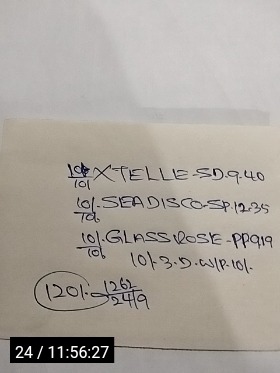 10/- X TELLE-SD.9.40
10/
10/-SEADISCO-SP.12.35
10/
10/-GLASS ROSE-PP.9.19
10/
10/-3.D.W/P.10/-
120/- 1262
2419
24 / 11:56:27